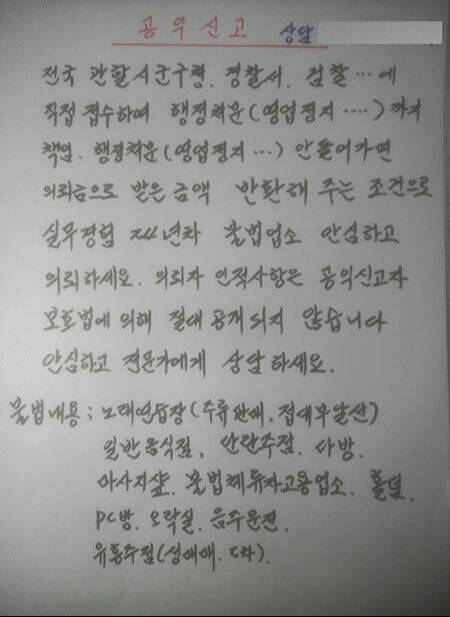 공익신고 상담
전국 관할시군구청. 경찰서. 검찰…에
직접 접수하여 행정처분(영업정지 ····) 까지
책임. 행정처분(영업정지 …) 안들어가면
의뢰금으로 받은 금액 반환해 주는 조건으로
실무경험 24년차 불법업소 안심하고
의뢰하세요. 의뢰자 인적사항은 공익신고자
보호법에 의해 절대 공개되지 않습니다
안심하고 전문가에게 상담하세요.
불법내용; 노래연습장(주류판매, 접대부알선)
일반음식점, 단란주점. 다방.
마사지샾. 불법체류자고용업소. 홀덤.
PC방. 오락실. 음주운전.
유흥주점(성매매. 2차).